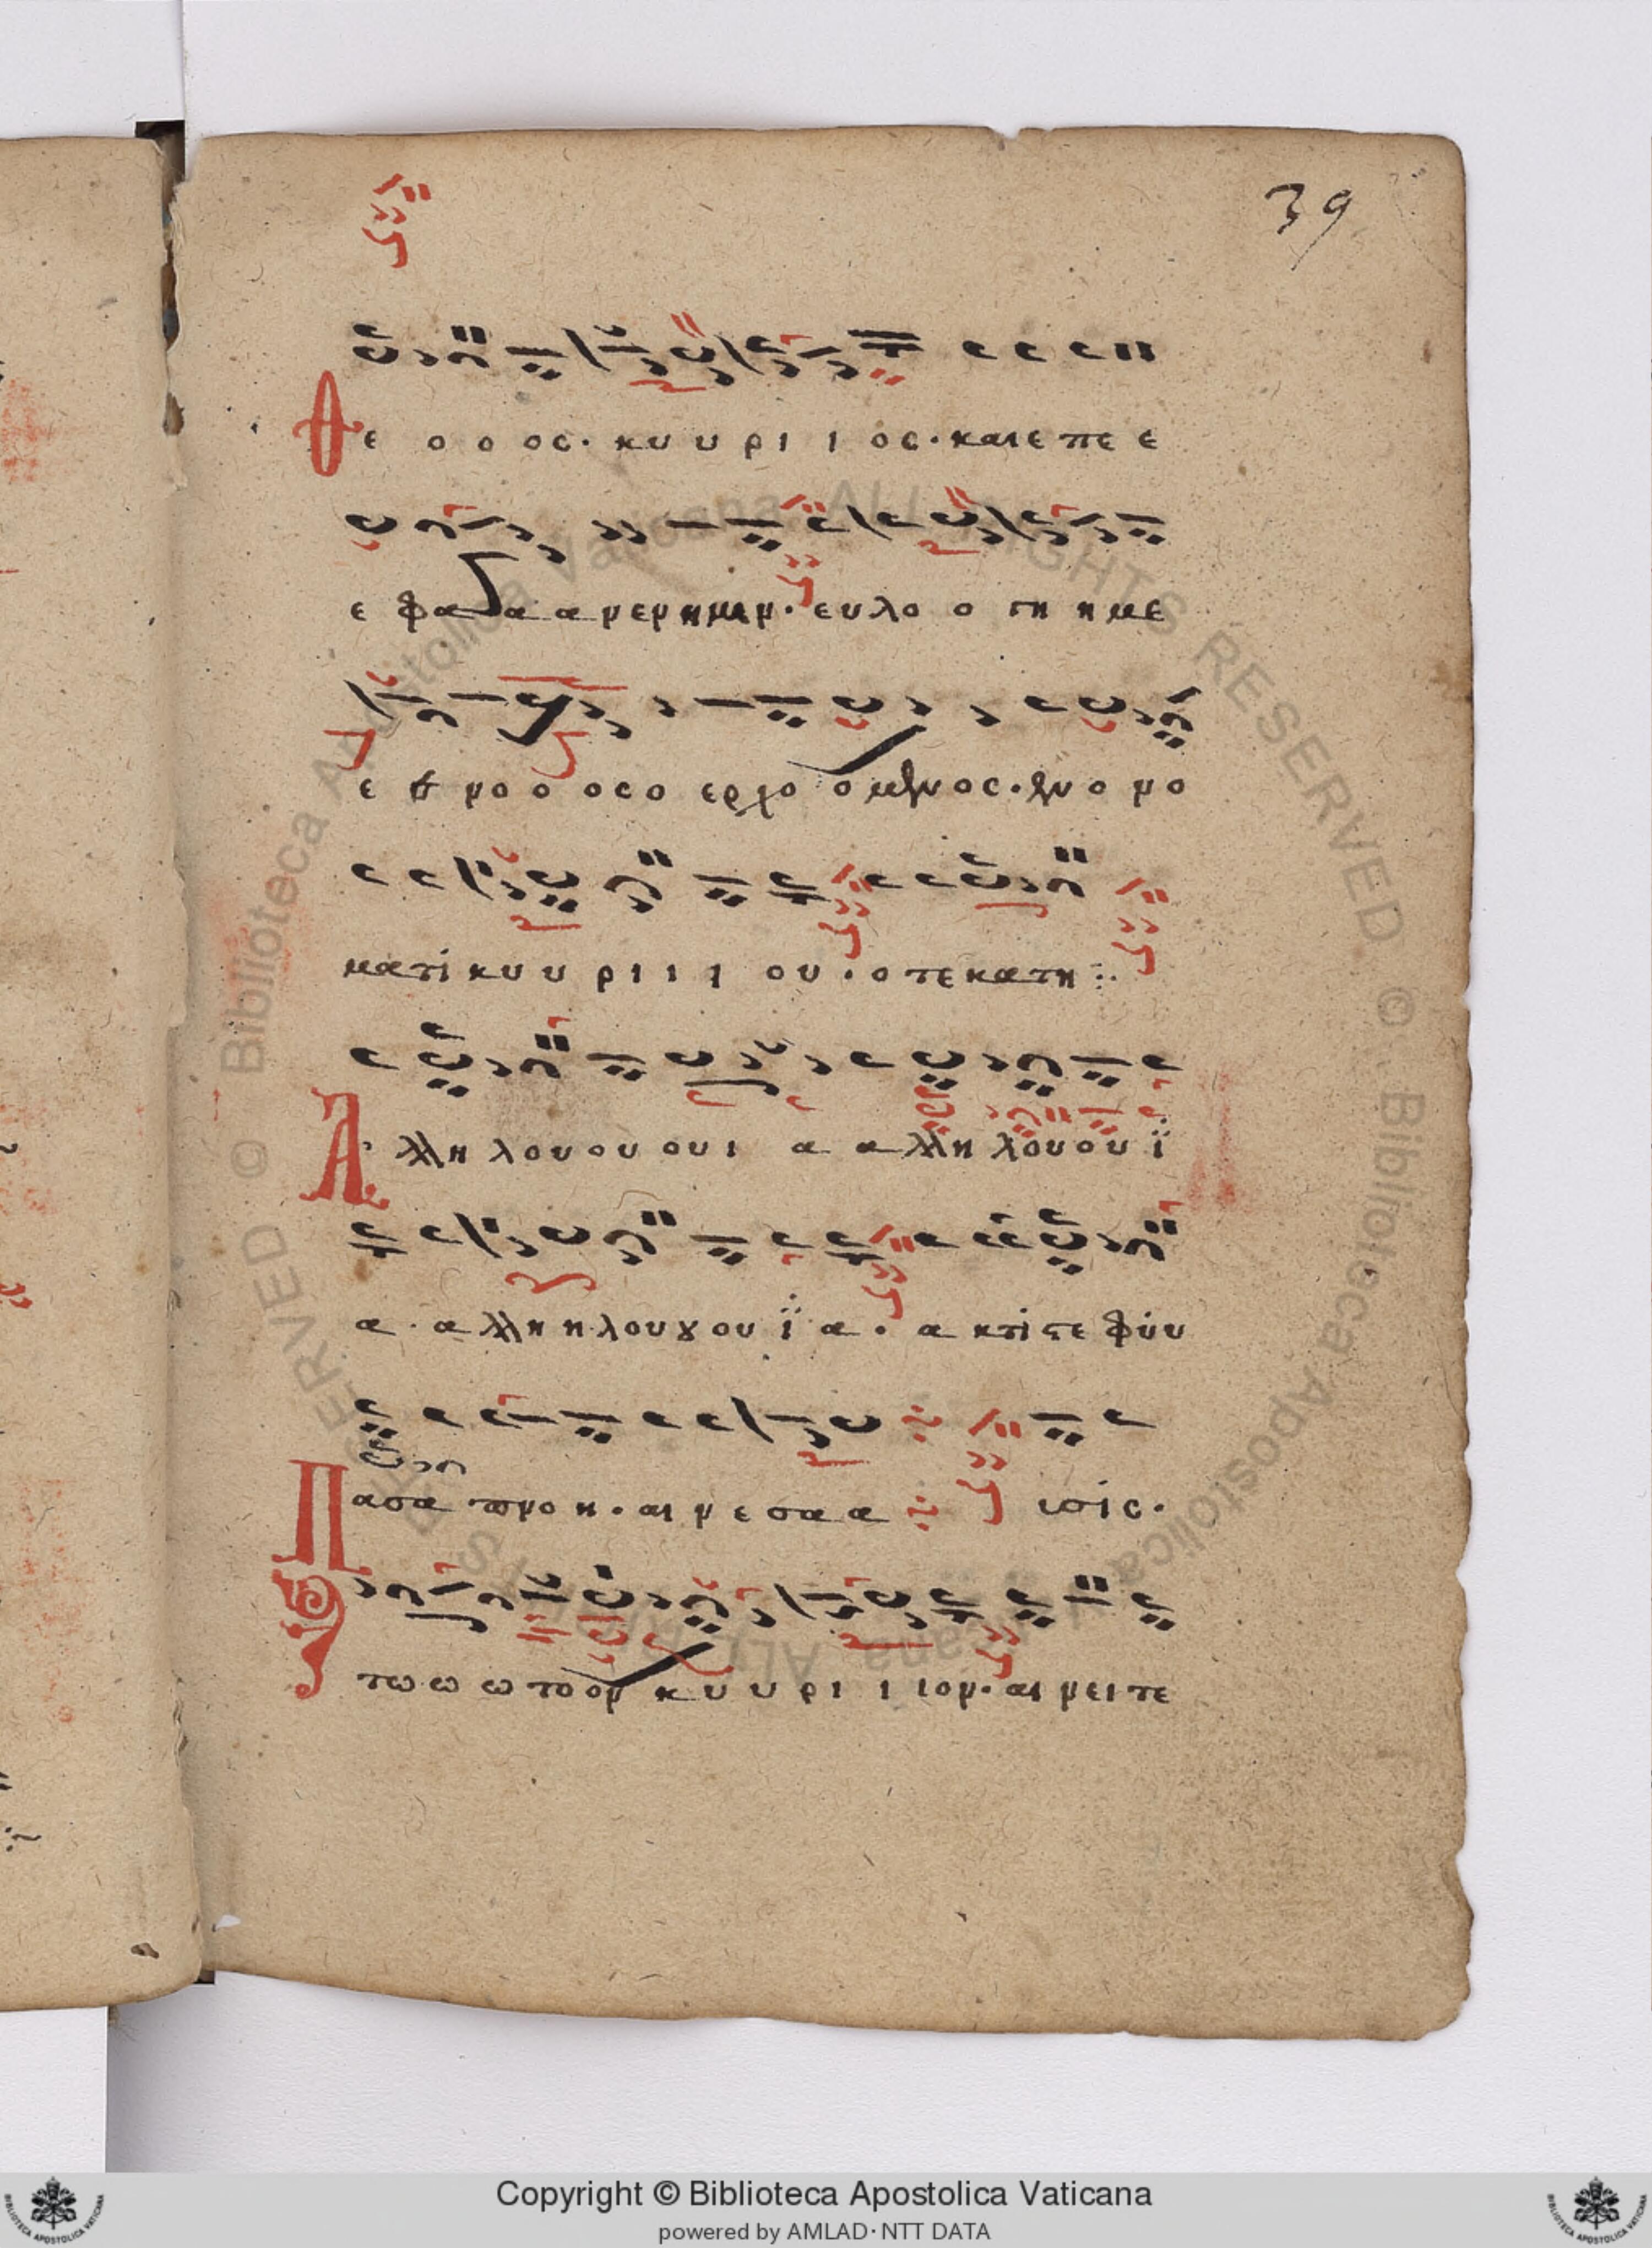 39
Θε ο ο ος· κυ υ ρι ι ος· και ε πε ε
ε φα α α νεν ημιν· ευλο ο γη η με
ε ε νο ο ος ο ερχο ο μενος· εν ο νο
ματί κυ υ ρι ι ι ου· ο τε κατη
Α λλη λου ου ου ι α αλλη λου ου ϊ
α· α λλη η λου ȣ ου ϊ α· α κτί στε φύυ
Πασα πνο η· αι νε σα α ισίς·
τω ω ω το ον κυ υ ρι ι ι ον· αι νει τε
© Biblioteca Apostolica Vaticana ALL RIGHTS RESERVED
Copyright © Biblioteca Apostolica Vaticana
powered by AMLAD·NTT DATA